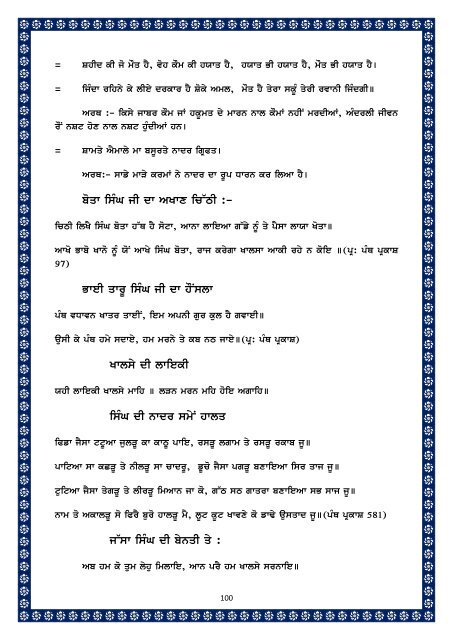 = ਸ਼ਹੀਦ ਕੀ ਜੋ ਮੌਤ ਹੈ, ਵੋਹ ਕੌਮ ਕੀ ਹਯਾਤ ਹੈ, ਹਯਾਤ ਭੀ ਹਯਾਤ ਹੈ, ਮੌਤ ਭੀ ਹਯਾਤ ਹੈ।
= ਜਿੰਦਾ ਰਹਿਨੇ ਕੇ ਲੀਏ ਦਰਕਾਰ ਹੈ ਸ਼ੋਕੇ ਅਮਲ, ਮੌਤ ਹੈ ਤੇਰਾ ਸਕੂੰ ਤੇਰੀ ਰਵਾਨੀ ਜਿੰਦਗੀ॥
ਅਰਥ :- ਕਿਸੇ ਜਾਬਰ ਕੌਮ ਜਾਂ ਹਕੂਮਤ ਦੇ ਮਾਰਨ ਨਾਲ ਕੌਮਾਂ ਨਹੀਂ ਮਰਦੀਆਂ, ਅੰਦਰਲੀ ਜੀਵਨ
ਰੌਂ ਨਸ਼ਟ ਹੋਣ ਨਾਲ ਨਸ਼ਟ ਹੁੰਦੀਆਂ ਹਨ।
= ਸ਼ਾਮਤੇ ਐਮਾਲੇ ਮਾ ਬਸੂਰਤੇ ਨਾਦਰ ਗ੍ਰਿਫਤ।
ਅਰਥ:- ਸਾਡੇ ਮਾੜੇ ਕਰਮਾਂ ਨੇ ਨਾਦਰ ਦਾ ਰੂਪ ਧਾਰਨ ਕਰ ਲਿਆ ਹੈ।
ਬੋਤਾ ਸਿੰਘ ਜੀ ਦਾ ਅਖਾਣ ਚਿੱਠੀ :-
ਚਿਠੀ ਲਿਖੈ ਸਿੰਘ ਬੋਤਾ ਹੱਥ ਹੈ ਸੋਟਾ, ਆਨਾ ਲਾਇਆ ਗੱਡੇ ਨੂੰ ਤੇ ਪੈਸਾ ਲਾਯਾ ਖੋਤਾ॥
ਆਖੋ ਭਾਬੋ ਖਾਨੋ ਨੂੰ ਯੋਂ ਆਖੇ ਸਿੰਘ ਬੋਤਾ, ਰਾਜ ਕਰੇਗਾ ਖਾਲਸਾ ਆਕੀ ਰਹੇ ਨ ਕੋਇ ॥(ਪ੍ਰ: ਪੰਥ ਪ੍ਰਕਾਸ਼
97)
ਭਾਈ ਤਾਰੂ ਸਿੰਘ ਜੀ ਦਾ ਹੌਂਸਲਾ
ਪੰਥ ਵਧਾਵਨ ਖਾਤਰ ਤਾਈਂ, ਇਮ ਅਪਨੀ ਗੁਰ ਕੁਲ ਹੈ ਗਵਾਈ॥
ਉਸੀ ਕੇ ਪੰਥ ਹਮੇ ਸਦਾਏ, ਹਮ ਮਰਨੇ ਤੇ ਕਬ ਨਠ ਜਾਏ॥(ਪ੍ਰ: ਪੰਥ ਪ੍ਰਕਾਸ਼)
ਖਾਲਸੇ ਦੀ ਲਾਇਕੀ
ਯਹੀ ਲਾਇਕੀ ਖਾਲਸੇ ਮਾਹਿ ॥ ਲੜਨ ਮਰਨ ਮਹਿ ਹੋਇ ਅਗਾਹਿ॥
ਸਿੰਘ ਦੀ ਨਾਦਰ ਸਮੇਂ ਹਾਲਤ
ਫਿਡਾ ਜੈਸਾ ਟਟੂਆ ਜੁਲੜੂ ਕਾ ਕਾਠੂ ਪਾਇ, ਰਸੜੂ ਲਗਾਮ ਤੇ ਰਸੜੂ ਰਕਾਬ ਜੂ॥
ਪਾਟਿਆ ਸਾ ਕਛੜੂ ਤੇ ਨੀਲੜੂ ਸਾ ਚਾਦਰੂ, ਡੂਚੋ ਜੈਸਾ ਪਗੜੂ ਬਣਾਇਆ ਸਿਰ ਤਾਜ ਜੂ॥
ਟੁਟਿਆ ਜੈਸਾ ਤੇਗੜੂ ਤੇ ਲੀਰੜੂ ਮਿਆਨ ਜਾ ਕੋ, ਗੱਠ ਸਠ ਗਾਤਰਾ ਬਣਾਇਆ ਸਭ ਸਾਜ ਜੂ॥
ਨਾਮ ਤੇ ਅਕਾਲੜੂ ਸੋ ਫਿਰੈ ਬੁਰੇ ਹਾਲੜੂ ਮੈ, ਲੂਟ ਕੂਟ ਖਾਵਣੇ ਕੋ ਡਾਢੇ ਉਸਤਾਦ ਜੂ॥(ਪੰਥ ਪ੍ਰਕਾਸ਼ 581)
ਜੱਸਾ ਸਿੰਘ ਦੀ ਬੇਨਤੀ ਤੇ :
ਅਬ ਹਮ ਕੋ ਤੁਮ ਲੇਹੁ ਮਿਲਾਇ, ਆਨ ਪਰੈ ਹਮ ਖਾਲਸੇ ਸਰਨਾਇ॥
100